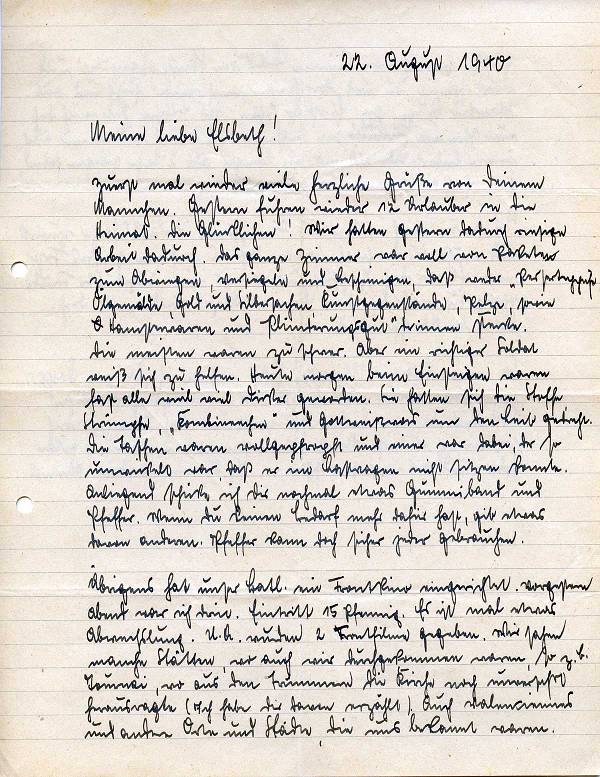 22. August 1940
Meine liebe Elsbeth!
Zuerst mal wieder viele herzliche Grüße von Deinem
Männchen. Gestern fuhren wieder 12 Urlauber in die
Heimat. Die Glücklichen! Wir hatten gestern dadurch riesige
Arbeit dadurch. Das ganze Zimmer war voll von Paketen
zum Abwiegen, Versiegeln und Bescheinigen, daß weder "Perserteppiche
Ölgemälde, Gold und Silbersachen, Kunstgegenstände, Pelze, sowie
Hamsterwaren und Plünderungsgut" drinnen steckte.
Die meisten waren zu schwer. Aber ein richtiger Soldat
weiß sich zu helfen. Heute morgen beim Einsteigen waren
fast alle viel viel dicker geworden. Sie hatten sich die Stoffe
Strümpfe, "Kombinenchen" und um den Leib gedreht.
Die Taschen waren vollgepfropft und einer war dabei, der so
umwickelt war, daß er im Lastwagen nicht sitzen konnte.
schicke ich Dir nochmal etwas Gummiband und
Pfeffer. Wenn Du keinen Bedarf mehr dafür hast, gib etwas
davon anderen. Pfeffer kann doch sicher jeder gebrauchen.
Übrigens hat unser Batl. ein Frontkino eingerichtet. Vorgestern
abend war ich drin. Eintritt 15 Pfennig. Es ist mal etwas
Abwechslung. U.A. wurden 2 Frontfilme gegeben. Wir sahen
manche Stätten, wo auch wir durchgekommen waren, so z.B.
Tournai, wo aus den Trümmern die Kirche noch unversehrt
herausragte (Ich habe Dir davon erzählt). Auch Valenciennes
und andere Orte und Städte, die uns bekannt waren.